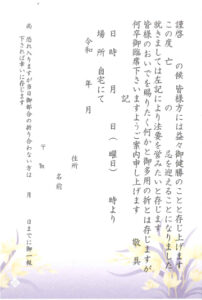 謹啓　　の候　皆様方には益々御健勝のことと存じ上げます
この度　亡　　　　　　　　忌を迎えることになりました
就きましては左記により法要を営みたいと存じます
皆様のおいでを賜りたく何かと御多用の折とは存じますが
何卒御臨席下さいますようご案内申し上げます
敬具
記
日時　　月　　日（　曜日）　　時より
場所　自宅にて
令和　　年　　月
住所
〒
名前
尚　恐れ入りますが当日御都合の折り合わない方は　　月　　日までに御一報
下されば幸いに存じます